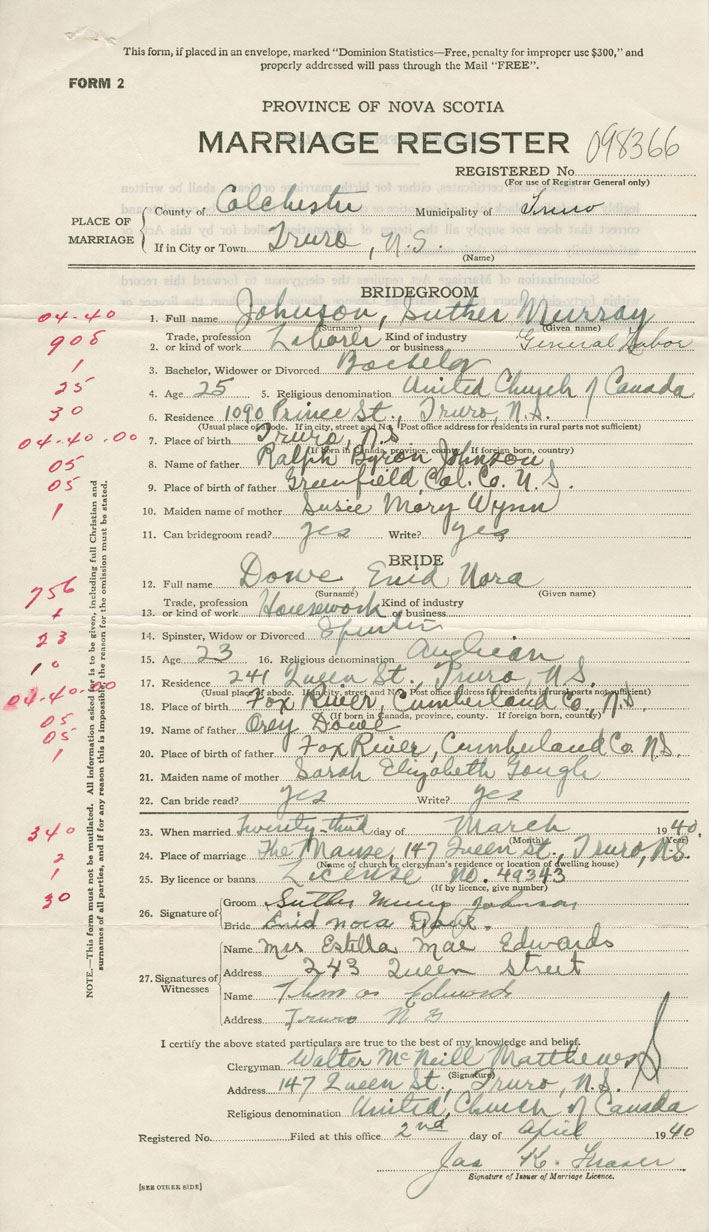 This form, if placed in an envelope, marked "Dominion Statistics—Free, penalty for improper use $300," and
properly addressed will pass through the Mail "FREE".
FORM 2
PROVINCE OF NOVA SCOTIA
MARRIAGE REGISTER 098366
REGISTERED No.
(For use of Registrar General only)
PLACE OF MARRIAGE
County of Colchester Municipality of Truro
If in City or Town Truro, N.S.
(Name)
BRIDEGROOM
04-40 1. Full name Johnson, Suther Murray
(Surname) (Given name)
908 2. Trade, profession or kind of work Laborer Kind of industry or business General Labor
1 3. Bachelor, Widower or Divorced Bachelor
25 4. Age 25 5. Religious denomination United Church of Canada
30 6. Residence 1090 Prince St., Truro, N.S.
(Usual place of abode. If in city, street and No. Post office address for residents in rural parts not sufficient)
04-40-00 7. Place of birth Truro, N.S.
(If born in Canada, province, county. If foreign born, country)
05 8. Name of father Ralph Byron Johnson
05 9. Place of birth of father Greenfield, Col. Co. N.S.
1 10. Maiden name of mother Susie Mary Wynn
11. Can bridegroom read? yes Write? yes
BRIDE
12. Full name Dowe, Enid Nora
(Surname) (Given name)
756 13. Trade, profession or kind of work Housework Kind of industry or business
14. Spinster, Widow or Divorced Spinster
23 15. Age 23 16. Religious denomination Anglican
10 17. Residence 241 Queen St., Truro, N.S.
(Usual place of abode. If in city, street and No. Post office address for residents in rural parts not sufficient)
04-40-00 18. Place of birth Fox River, Cumberland Co., N.S.
(If born in Canada, province, county. If foreign born, country)
05 19. Name of father Orey Dowe
05 20. Place of birth of father Fox River, Cumberland Co. N.S.
1 21. Maiden name of mother Sarah Elizabeth Gough
22. Can bride read? yes Write? yes
340 23. When married Twenty-third day of March 1940.
(Month) (Year)
2 24. Place of marriage The Manse, 147 Queen St., Truro, N.S.
(Name of church or clergyman's residence or location of dwelling house)
1 25. By licence or banns License No. 49343
(If by licence, give number)
30 26. Signature of
Groom Suther Murray Johnson
Bride Enid Nora Dowe.
27. Signatures of Witnesses
Name Mrs Estella Mae Edwards
Address 243 Queen Street
Name Thomas Edwards
Address Truro N S
I certify the above stated particulars are true to the best of my knowledge and belief.
Clergyman Walter McNeill Matthews
(Signature)
Address 147 Queen St., Truro, N.S.
Religious denomination United Church of Canada
Registered No. Filed at this office 2nd day of April 1940
Jas K. Fraser
Signature of Issuer of Marriage Licence.
[SEE OTHER SIDE]
NOTE.—This form must not be mutilated. All information asked for is to be given, including full Christian and
surnames of all parties, and if for any reason this is impossible, the reason for the omission must be stated.